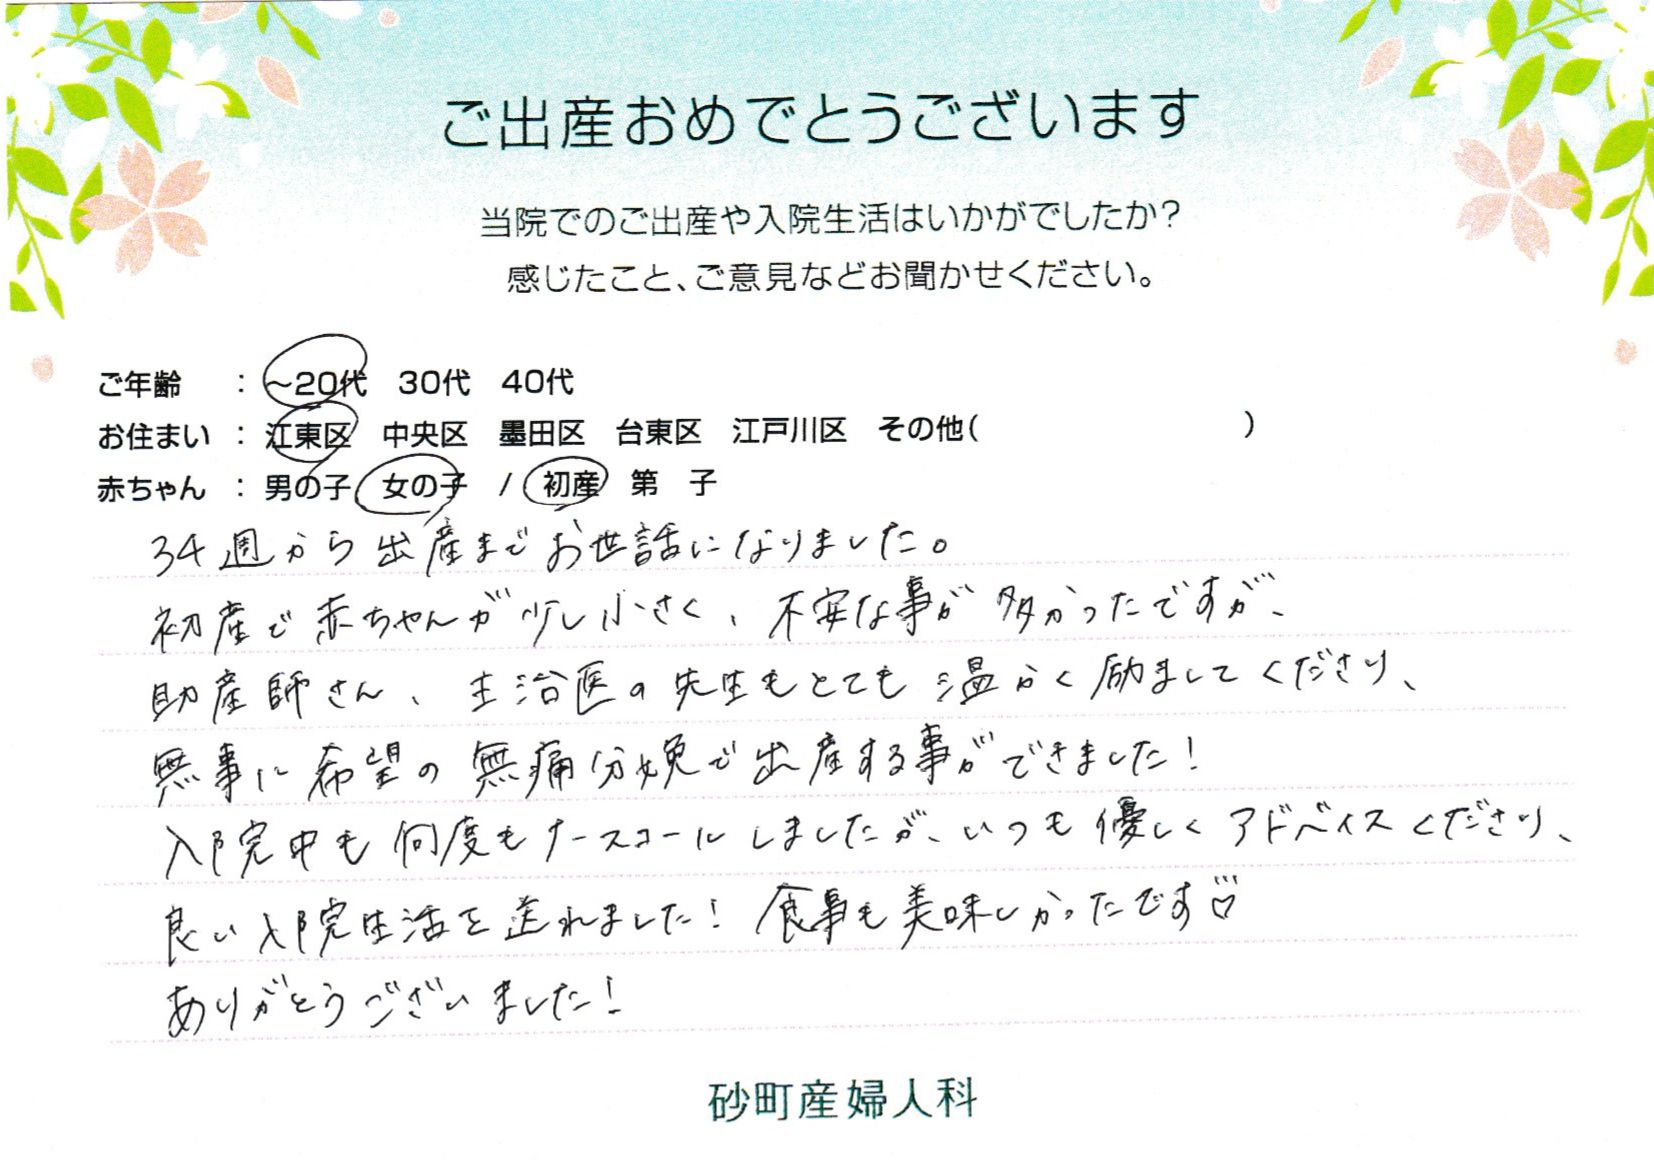 ご出産おめでとうございます
当院でのご出産や入院生活はいかがでしたか?
感じたこと、ご意見などお聞かせください。
ご年齢 : ~20代 30代 40代
お住まい : 江東区 中央区 墨田区 台東区 江戸川区 その他( )
赤ちゃん : 男の子 女の子 / 初産 第 子
34週から出産までお世話になりました。
初産で赤ちゃんが少し小さく、不安な事が多かったですが、
助産師さん、主治医の先生もとても温かく励ましてくださり、
無事に希望の無痛分娩で出産する事ができました!
入院中も何度もナースコールしましたが、いつも優しくアドバイスくださり、
良い入院生活を送れました!食事も美味しかったです♡
ありがとうございました!
砂町産婦人科